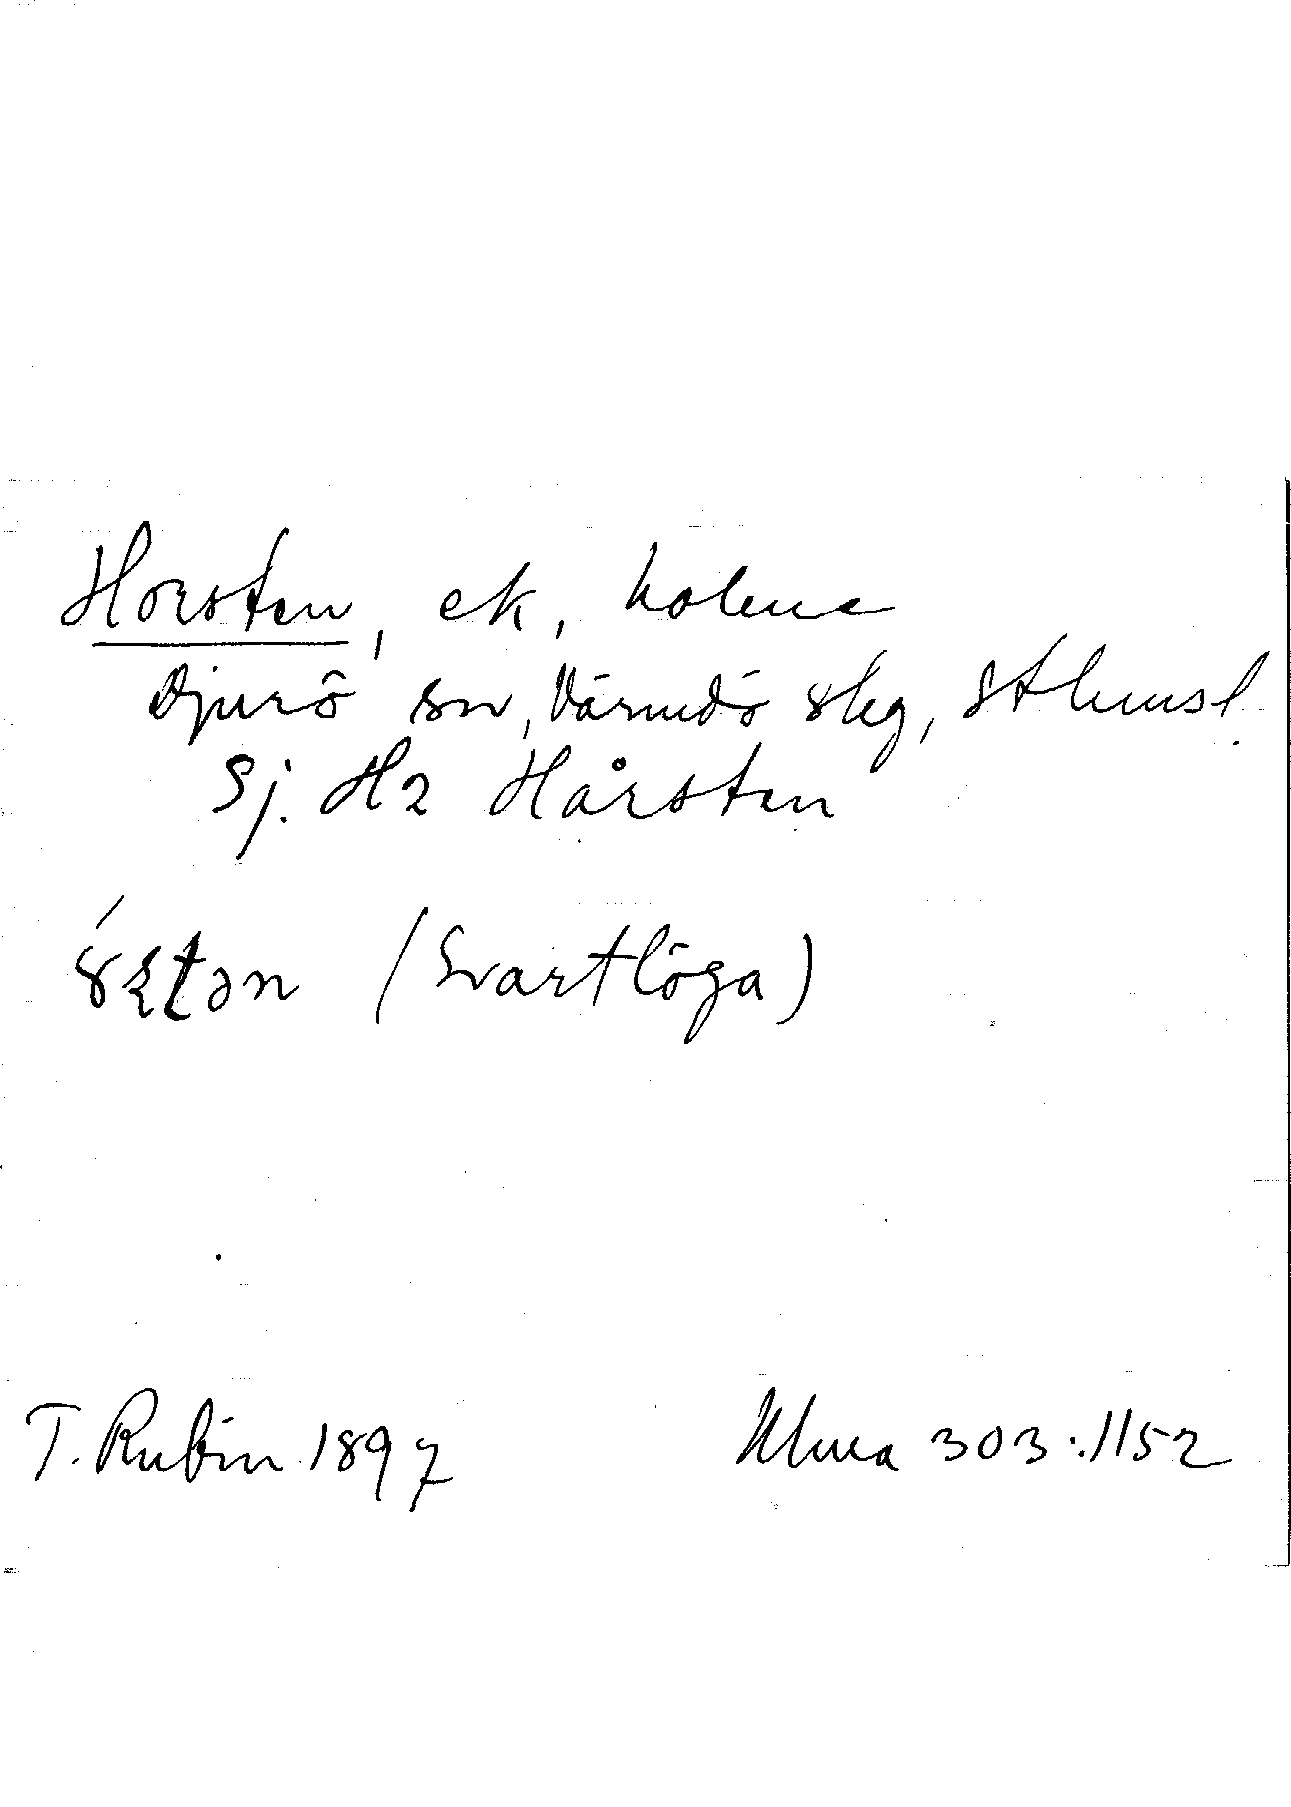 Horsten, ek, holme
Djurö sn, Värmdö skg, Sthmsl.
Sj. H2 Hårsten
(Svartlöga)
T. Rubin 1897 Ulma 303:1152